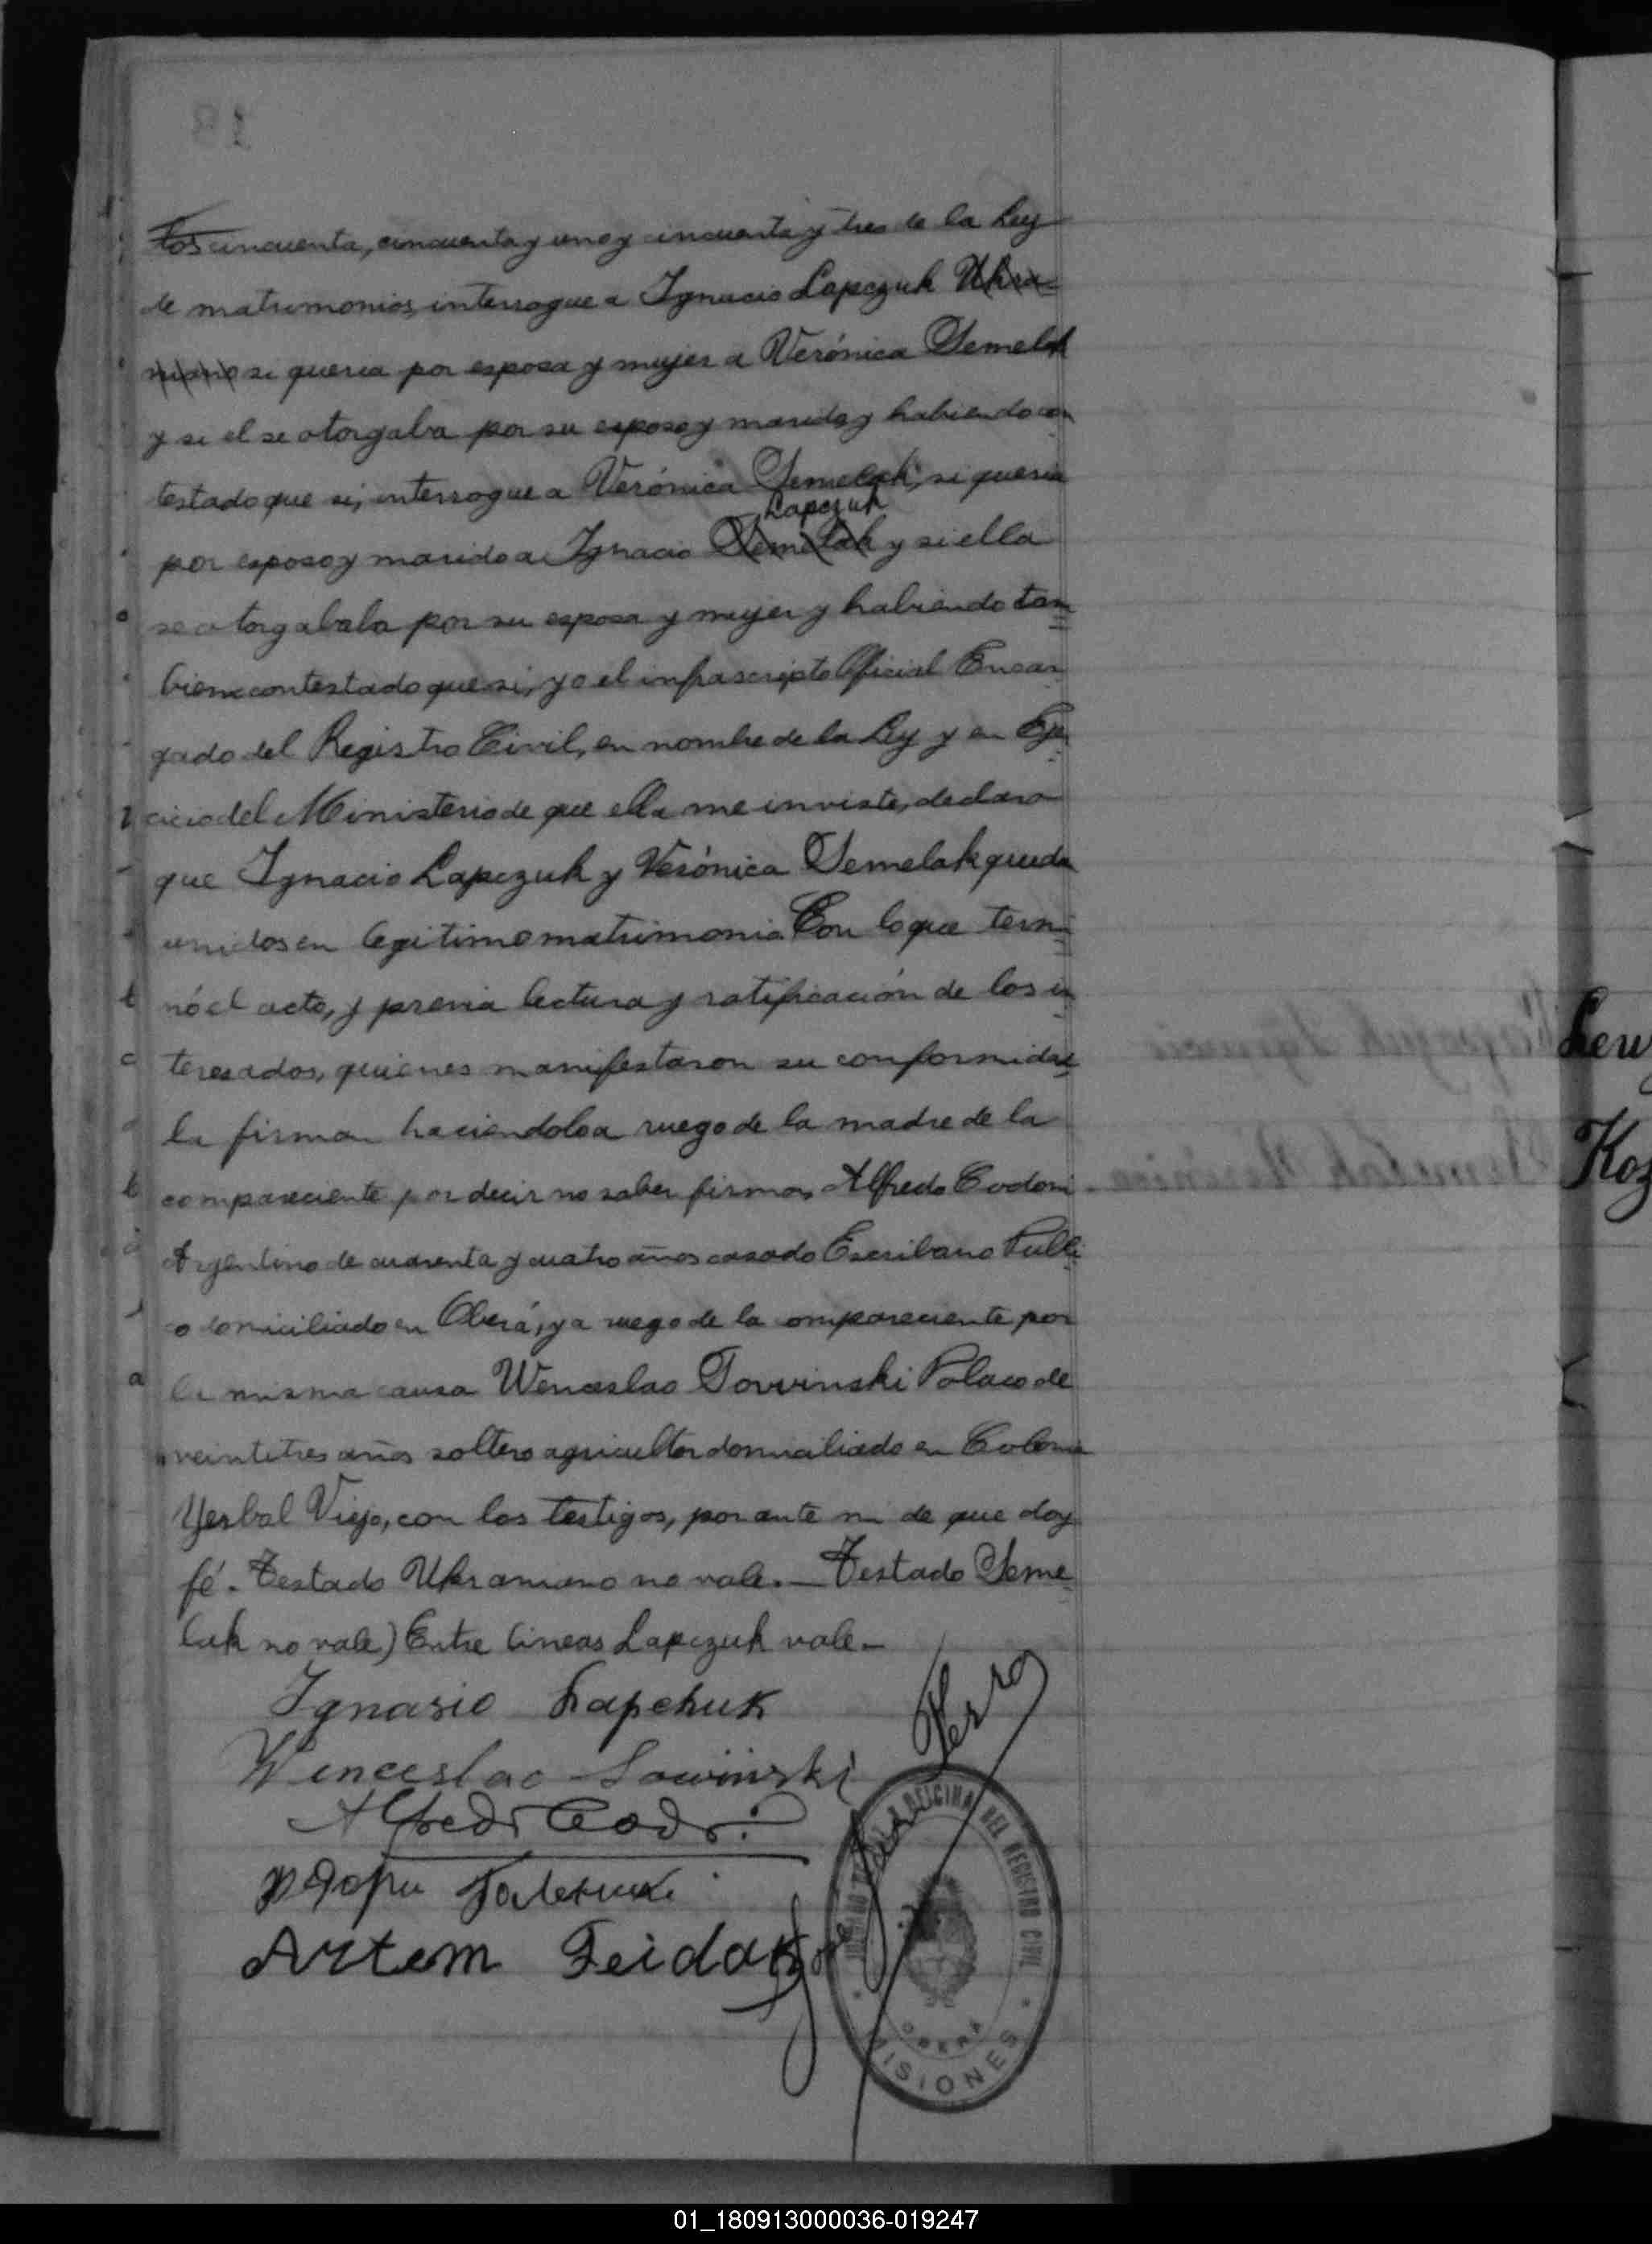 tos cincuenta, cincuenta y uno y cincuenta y tres de la Ley
de matrimonios, interrogue a Ignacio Lapczuk Ukra-
niano si queria por esposa y mujer a Verónica Semelak
y si el se otorgaba por su esposo y marido y habiendo con
testado que si, interrogue a Verónica Semelak, si queria
Lapczuk
por esposo y marido a Ignacio Semelak y si ella
se otorgabala por su esposa y mujer y habiendo tam
bien contestado que si, yo el infrascripto Oficial Encar
gado del Registro Civil, en nombre de la Ley y en Eje
cicio del Ministerio de que ella me inviste, declaro
que Ignacio Lapczuk y Verónica Semelak queda
unidos en legitimo matrimonio. Con lo que termi
nó el acto, y previa lectura y ratificación de los in
teresados, quienes manifestaron su conformidad
la firman haciendolo a ruego de la madre de la
compareciente por decir no saber firmar, Alfredo Codoni
Argentino de cuarenta y cuatro años casado Escribano Publi
co domiciliado en Oberá, y a ruego de la compareciente por
la misma causa Wenceslao Sowinski Polaco de
veintitres años soltero agricultor domiciliado en Colonia
Yerbal Viejo, con los testigos, por ante mi de que doy
fé. Testado Ukraniano no vale.— Testado Seme
lak no vale) Entre lineas Lapczuk vale—
Ignasio Lapchuk
Wenceslao Sowinski
Alfredo Codoni
Artem Feidak
OFICINA DEL REGISTRO CIVIL
OBERA
MISIONES
Lew
Koz
01_180913000036-019247